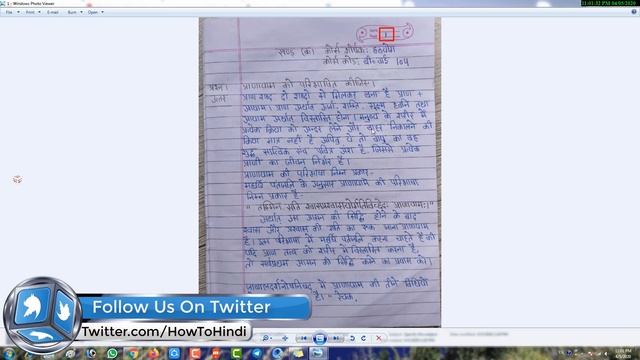 1 - Windows Photo Viewer
11:01:32 PM 04/05/2020
File Print E-mail Burn Open
1
खण्ड (क) कोर्स शीर्षक: हठयोग
कोर्स कोड: 104
प्रश्न 1 प्राणायाम को परिभाषित कीजिए।
उत्तर प्राण शब्द दो शब्दों से मिलकर बना है प्राण +
आयाम। प्राण अर्थात ऊर्जा, शक्ति, सूक्ष्म तथा
आयाम अर्थात विस्तारित होना। मनुष्य के शरीर में
प्रत्येक क्रिया को अन्दर लेने और बाहर निकालने की
क्रिया मात्र नहीं है अपितु ये तो वायु का वह
शुद्ध सात्विक रूप पवित्र ऊर्जा है जिसमें प्रत्येक
प्राणी का जीवन निर्भर है।
प्राणायाम की परिभाषा निम्न प्रकार-
महर्षि पतंजलि के अनुसार प्राणायाम की परिभाषा
निम्न प्रकार है-
" तस्मिन सति प्राणायामः।"
अर्थात् उस आसन की सिद्धि होने के बाद
श्वास और प्रश्वास की गति का रुक जाना प्राणायाम
है। इस परिभाषा में महर्षि पतंजलि कहना चाहते हैं की
यदि प्राण तत्व को शरीर में विस्तारित करना है,
तो सर्वप्रथम आसन की सिद्धि करने का प्रयास करें।
में प्राणायाम की तीन विधियाँ
है। -
Follow Us On Twitter
Twitter.com/HowToHindi
11:01 PM
4/5/2020